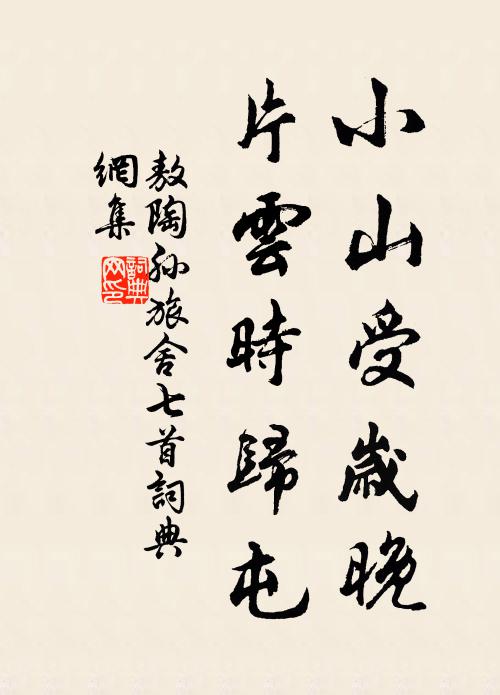 小山受歲晚
片雲時歸屯
敖陶孫旅舍七首詞典
網集
詞典網印